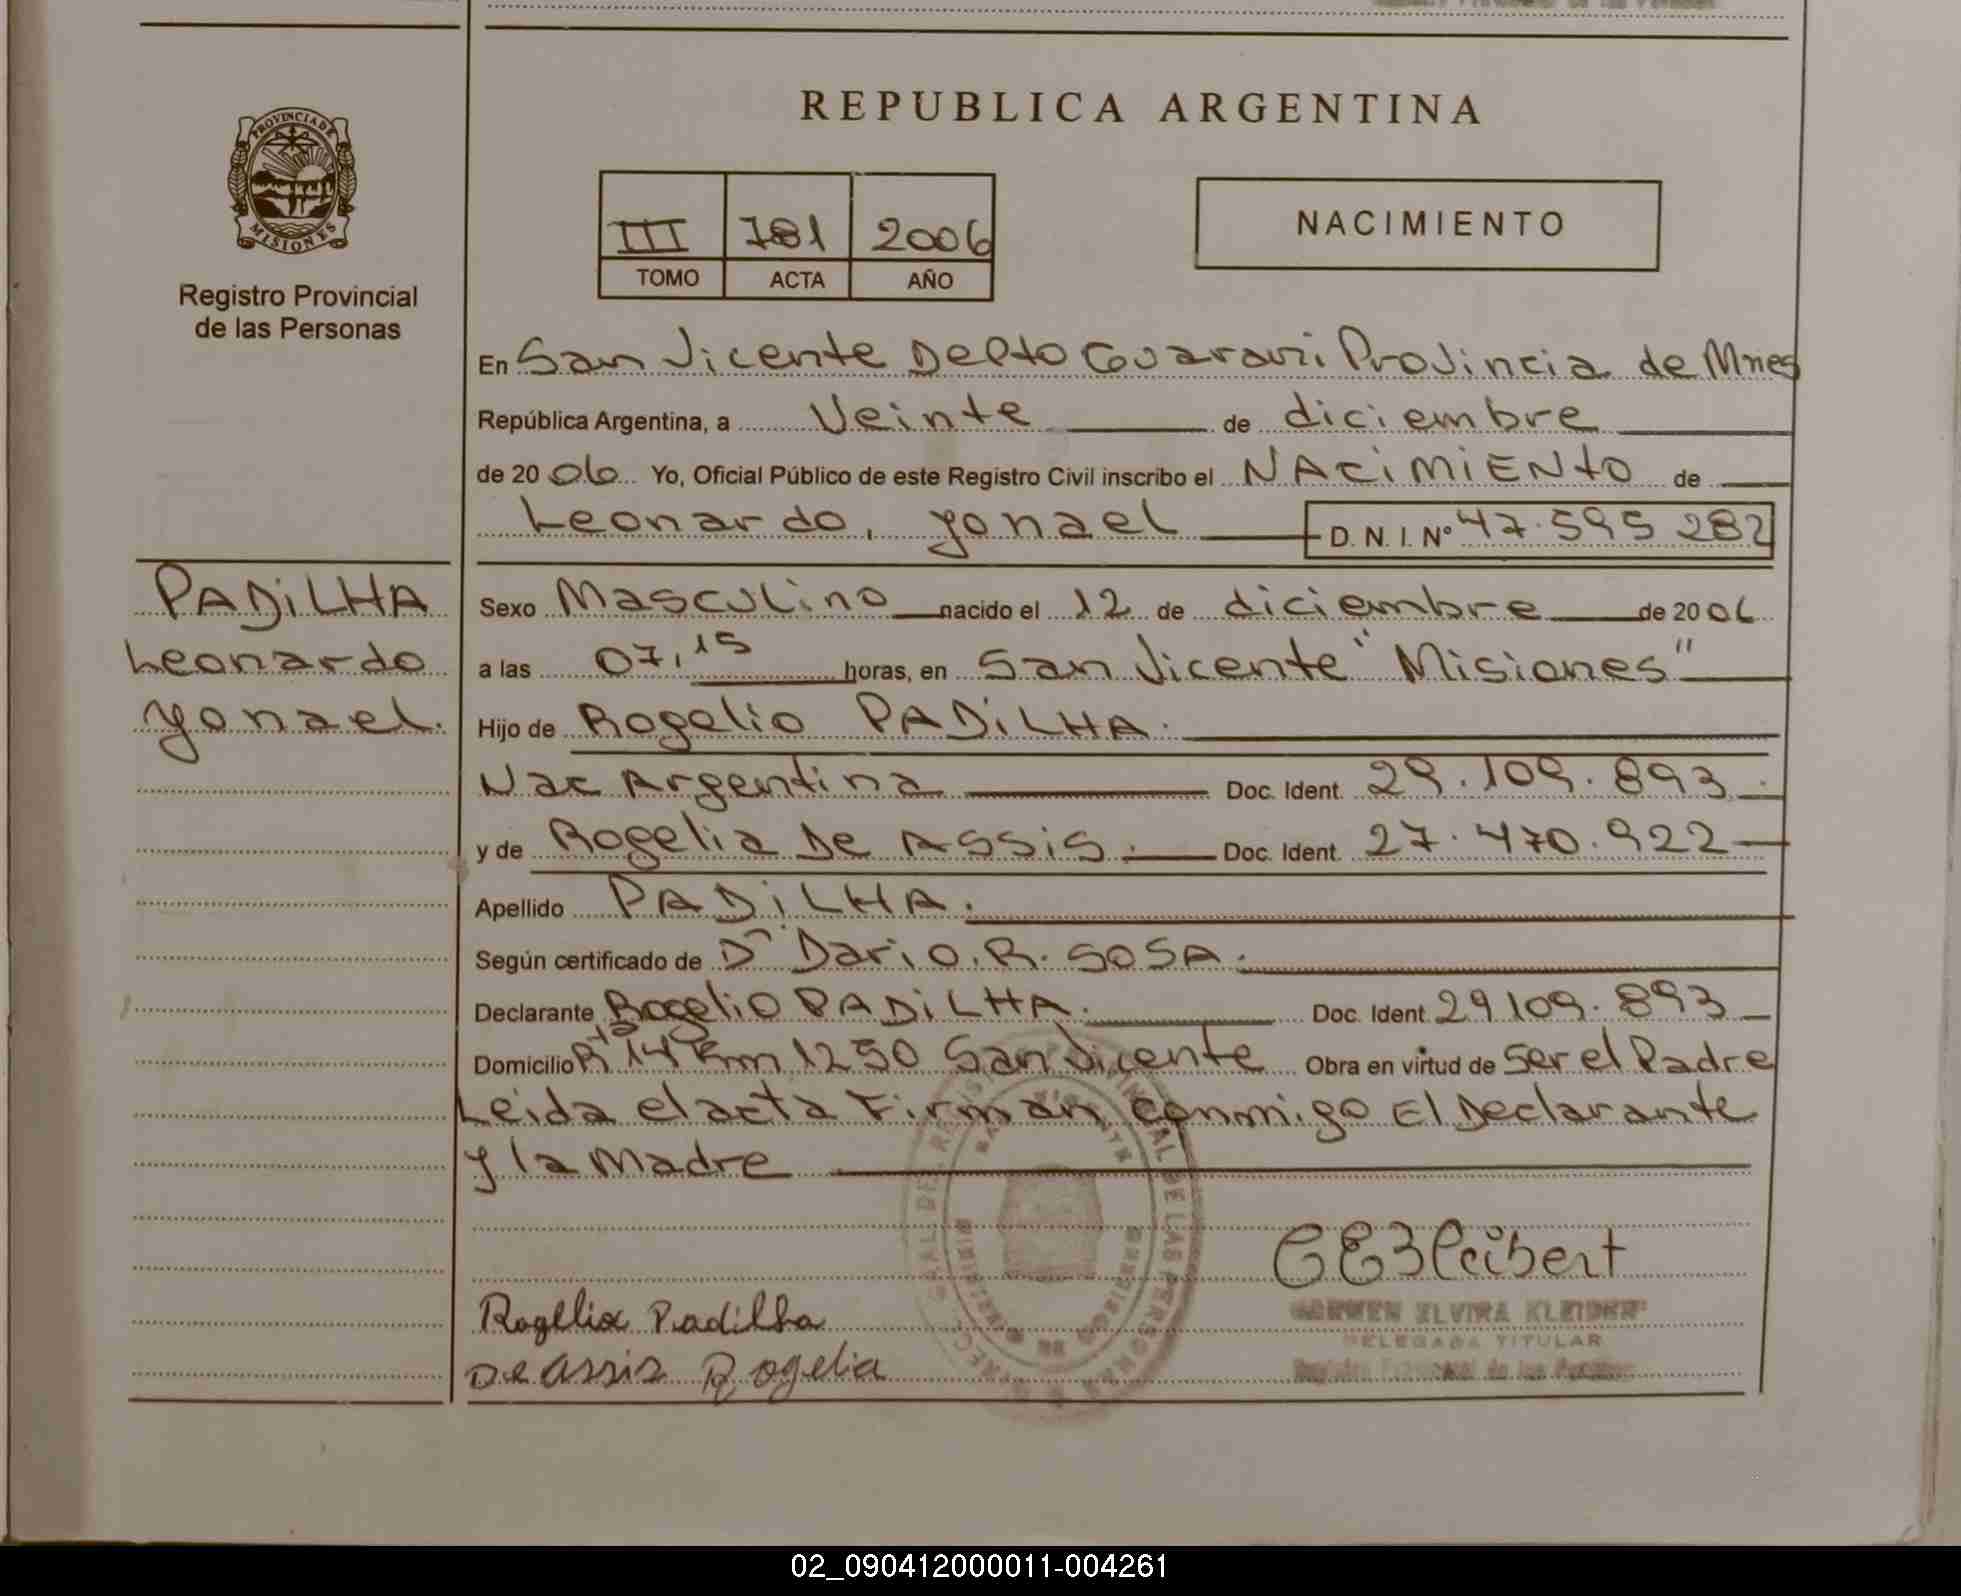 REPUBLICA ARGENTINA
PROVINCIA DE
MISIONES
Registro Provincial
de las Personas
III 781 2006
TOMO ACTA AÑO
NACIMIENTO
En San Vicente Depto Guarani Provincia de Mnes
República Argentina, a Veinte de diciembre
de 20 06 Yo, Oficial Público de este Registro Civil inscribo el NACiMiENtO de
Leonardo, yonael D. N. I. Nº 47.595 282
PADiLHA
Leonardo
yonael.
Sexo Masculino nacido el 12 de diciembre de 20 06
a las 07,15 horas, en San Vicente "Misiones"
Hijo de Rogelio PADiLHA.
Nac Argentina Doc. Ident. 29.109.893.
y de Rogelia De Assis. Doc. Ident. 27.470.922
Apellido PADiLHA.
Según certificado de Dr Dario. R. SOSA.
Declarante Rogelio PADiLHA. Doc. Ident 29109.893
Domicilio Rta 14 Km 1250 San Vicente Obra en virtud de Ser el Padre
Leida el acta Firman conmigo El Declarante
y la Madre
Rogelio Padilha
De assis Rogelia
CARMEN ELVIRA
DELEGADA TITULAR
Registro Provincial de las Personas
02_090412000011-004261